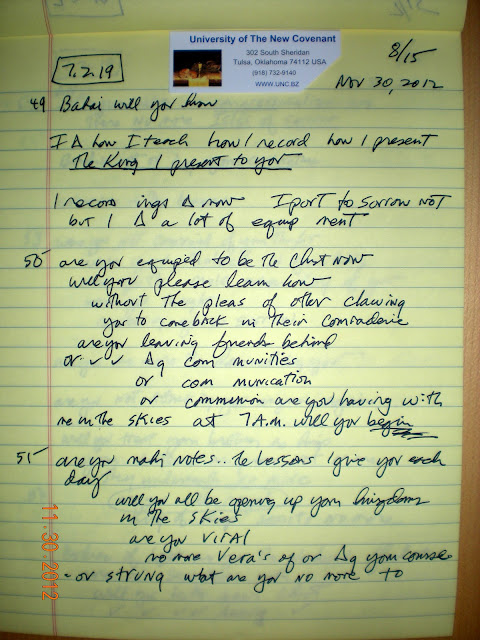 University of The New Covenant
302 South Sheridan
Tulsa, Oklahoma 74112 USA
(918) 732-9140
WWW.UNC.BZ
8/15
7.2.19
Nov 30, 2012
49 Bahai will you know
I Δ how I teach how I record how I present
The King I present to you
I record ings Δ now I port to sorrow not
but I Δ a lot of equip ment
50 are you equiped to be the Christ now
will you please learn how
without The pleas of other clawing
you to come back in Their comraderie
are you leaving friends behind
or ✓✓ Δg com munities
or com munication
or communion are you having with
me in the skies at 7 A.m. will you begin
51 are you making notes.. The Lessons I give you each
day
will you all be opening up your kingdoms
in The skies
are you viral
no more Vera's of or Δg your course
or strung what are you no more to
11.30.2012